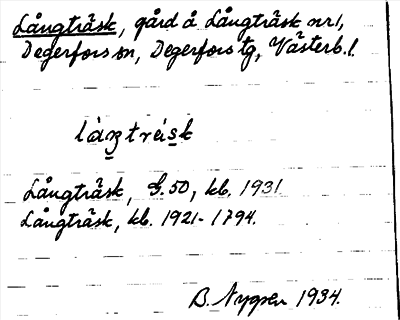 Långträsk, gård å Långträsk nr 1,
Degerfors sn, Degerfors tg, Västerb. l.
Långträsk, G. 50, kb. 1931
Långträsk, kb. 1921-1794.
B. Nygren 1934.